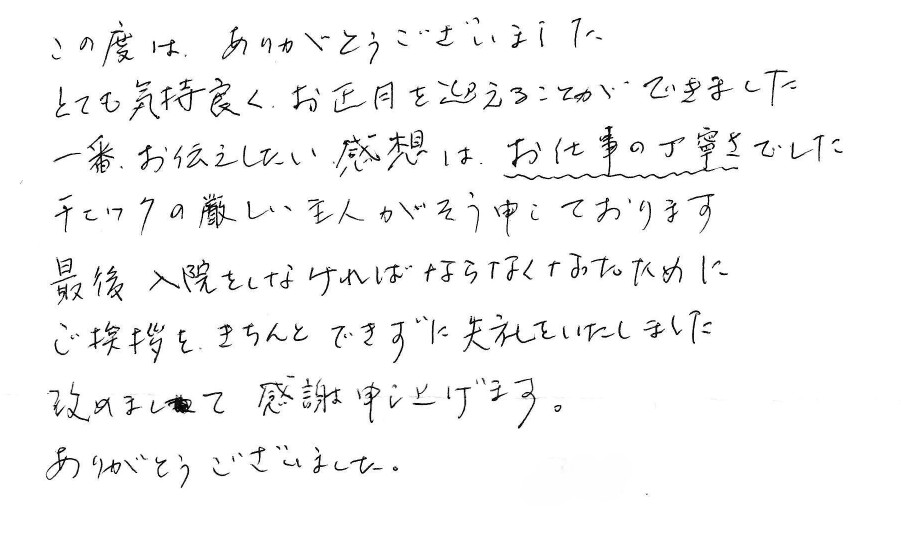 この度は、ありがとうございました
とても気持良く、お正月を迎えることができました
一番、お伝えしたい、感想は、お仕事の丁寧さでした
チェックの厳しい主人がそう申しております
最後入院をしなければならなくなったために
ご挨拶を、きちんとできずに失礼をいたしました
改めまして感謝申し上げます。
ありがとうございました。